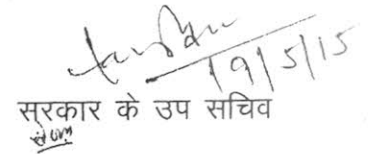 19/5/15
सरकार के उप सचिव